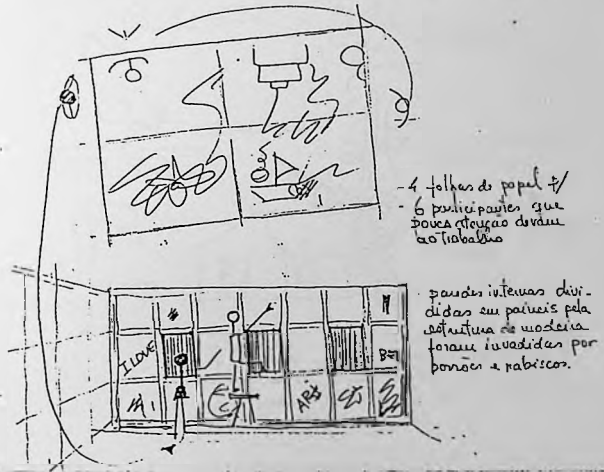 - 4 folhas de papel p/
- 6 participantes que
pouca atenção devam
ao trabalho
paredes internas divi-
didas em paineis pela
estrutura de madeira
foram invadidas por
borrões e rabiscos.
I LOVE